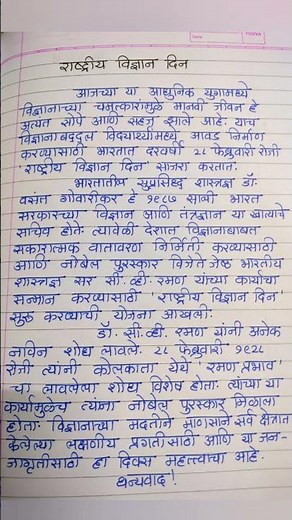 राष्ट्रीय विज्ञान दिन
आजच्या या आधुनिक युगामध्ये
विज्ञानाच्या चमत्कारामुळे मानवी जीवन हे
अत्यंत सोपे आणि सहज झाले आहे. याच
विज्ञानाबद्दल विद्यार्थ्यांमध्ये आवड निर्माण
करण्यासाठी भारतात दरवर्षी २८ फेब्रुवारी रोजी
'राष्ट्रीय विज्ञान दिन' साजरा करतात.
भारतातील सुप्रसिद्ध शास्त्रज्ञ डॉ.
वसंत गोवारीकर हे १९८७ साली भारत
सरकारच्या विज्ञान आणि तंत्रज्ञान या खात्याचे
सचिव होते. त्यावेळी देशात विज्ञानाबाबत
सकारात्मक वातावरण निर्मिती करण्यासाठी
आणि नोबेल पुरस्कार विजेते जेष्ठ भारतीय
शास्त्रज्ञ सर सी.व्ही. रमण यांच्या कार्याचा
सन्मान करण्यासाठी 'राष्ट्रीय विज्ञान दिन'
सुरू करण्याची योजना आखली.
डॉ. सी.व्ही. रमण यांनी अनेक
नविन शोध लावले. २८ फेब्रुवारी १९२८
रोजी त्यांनी कोलकाता येथे 'रमण प्रभाव'
चा लावलेला शोध विशेष होता. त्यांच्या या
कार्यामुळेच त्यांना नोबेल पुरस्कार मिळाला
होता. विज्ञानाच्या मदतीने माणसाने सर्व क्षेत्रात
केलेल्या लक्षणीय प्रगतीसाठी आणि या जन-
जागृतीसाठी हा दिवस महत्त्वाचा आहे.
धन्यवाद!